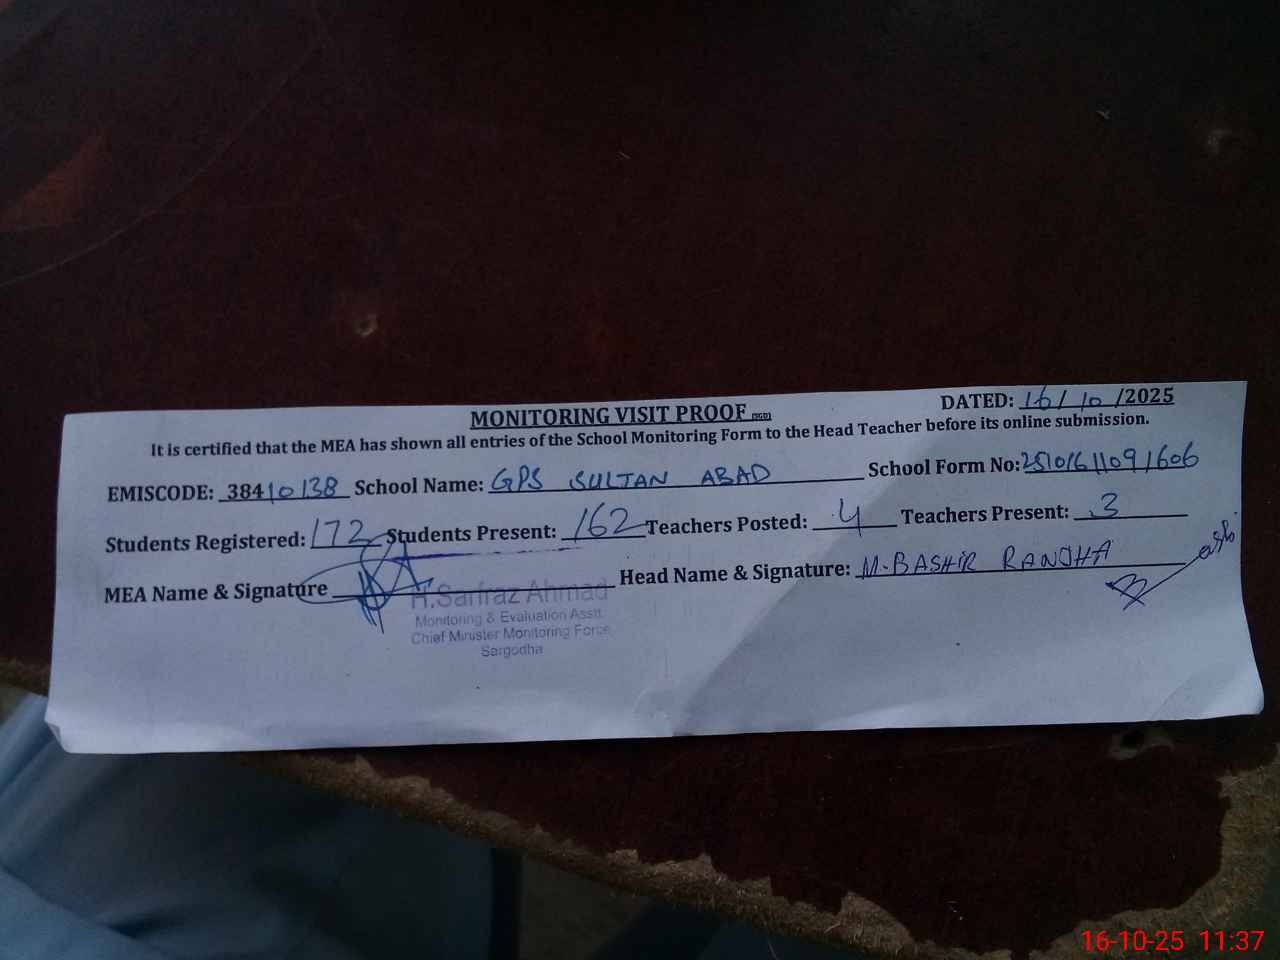 MONITORING VISIT PROOF (SGD)
DATED: 16/10/2025
It is certified that the MEA has shown all entries of the School Monitoring Form to the Head Teacher before its online submission.
EMISCODE: 38410138 School Name: GPS SULTAN ABAD School Form No: 25101611091606
Students Registered: 172 Students Present: 162 Teachers Posted: 4 Teachers Present: 3
MEA Name & Signature Head Name & Signature: M. BASHIR RANJHA
H.Sarfraz Ahmad
Monitoring & Evaluation Asstt.
Chief Minister Monitoring Force
Sargodha
16-10-25 11:37